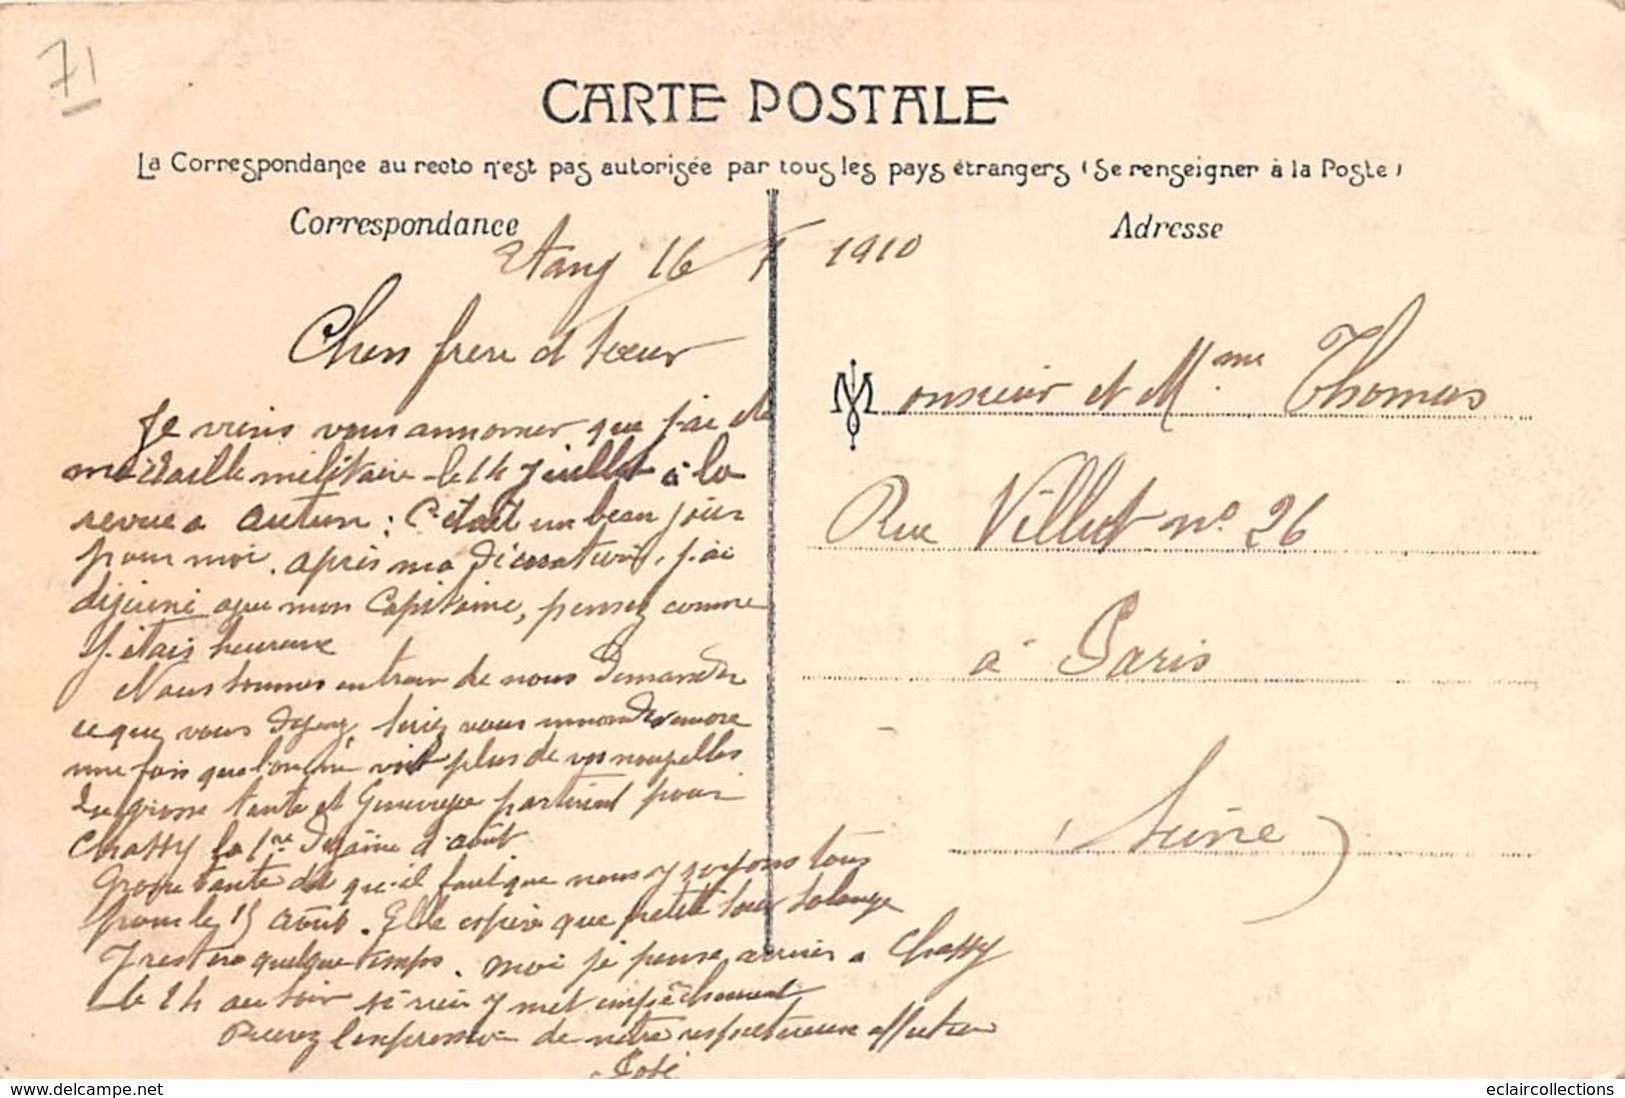 71
CARTE POSTALE
La Correspondance au recto n'est pas autorisée par tous les pays étrangers (Se renseigner à la Poste)
Correspondance
Adresse
Etang 16 1910
Chers frere et soeur
Je viens vous annoncer que j'ai été
médaille militaire le 14 juillet à la
revue a autun : C'était un beau jour
pour moi. après ma décoration, j'ai
déjeuné avec mon Capitaine, pensez comme
j'étais heureux
Nous sommes en train de nous demander
ce que vous
une fois que plus de vos nouvelles
grosse tante et Genevieve partirent pour
Chassy la 1re d'août
Grosse tante dit qu-il faut que nous y soyons tous
pour le 15 août. Elle espère que petite soeur Solange
y restera quelque temps. moi je pense arriver a Chassy
le 14 au soir si rien y met empêchement
Recevez l'expression de notre respectueuse affection
Monsieur et Mme Thomas
Rue Villiot no 26
à Paris
(Seine)
delcampe.net
eclaircollections